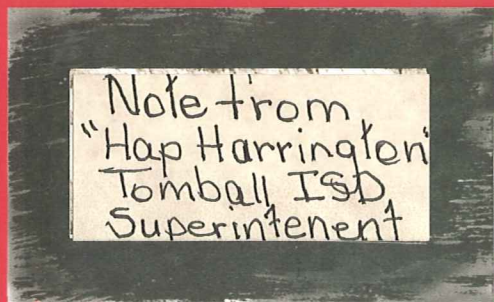 Note from
"Hap Harrington"
Tomball ISD
Superintenent